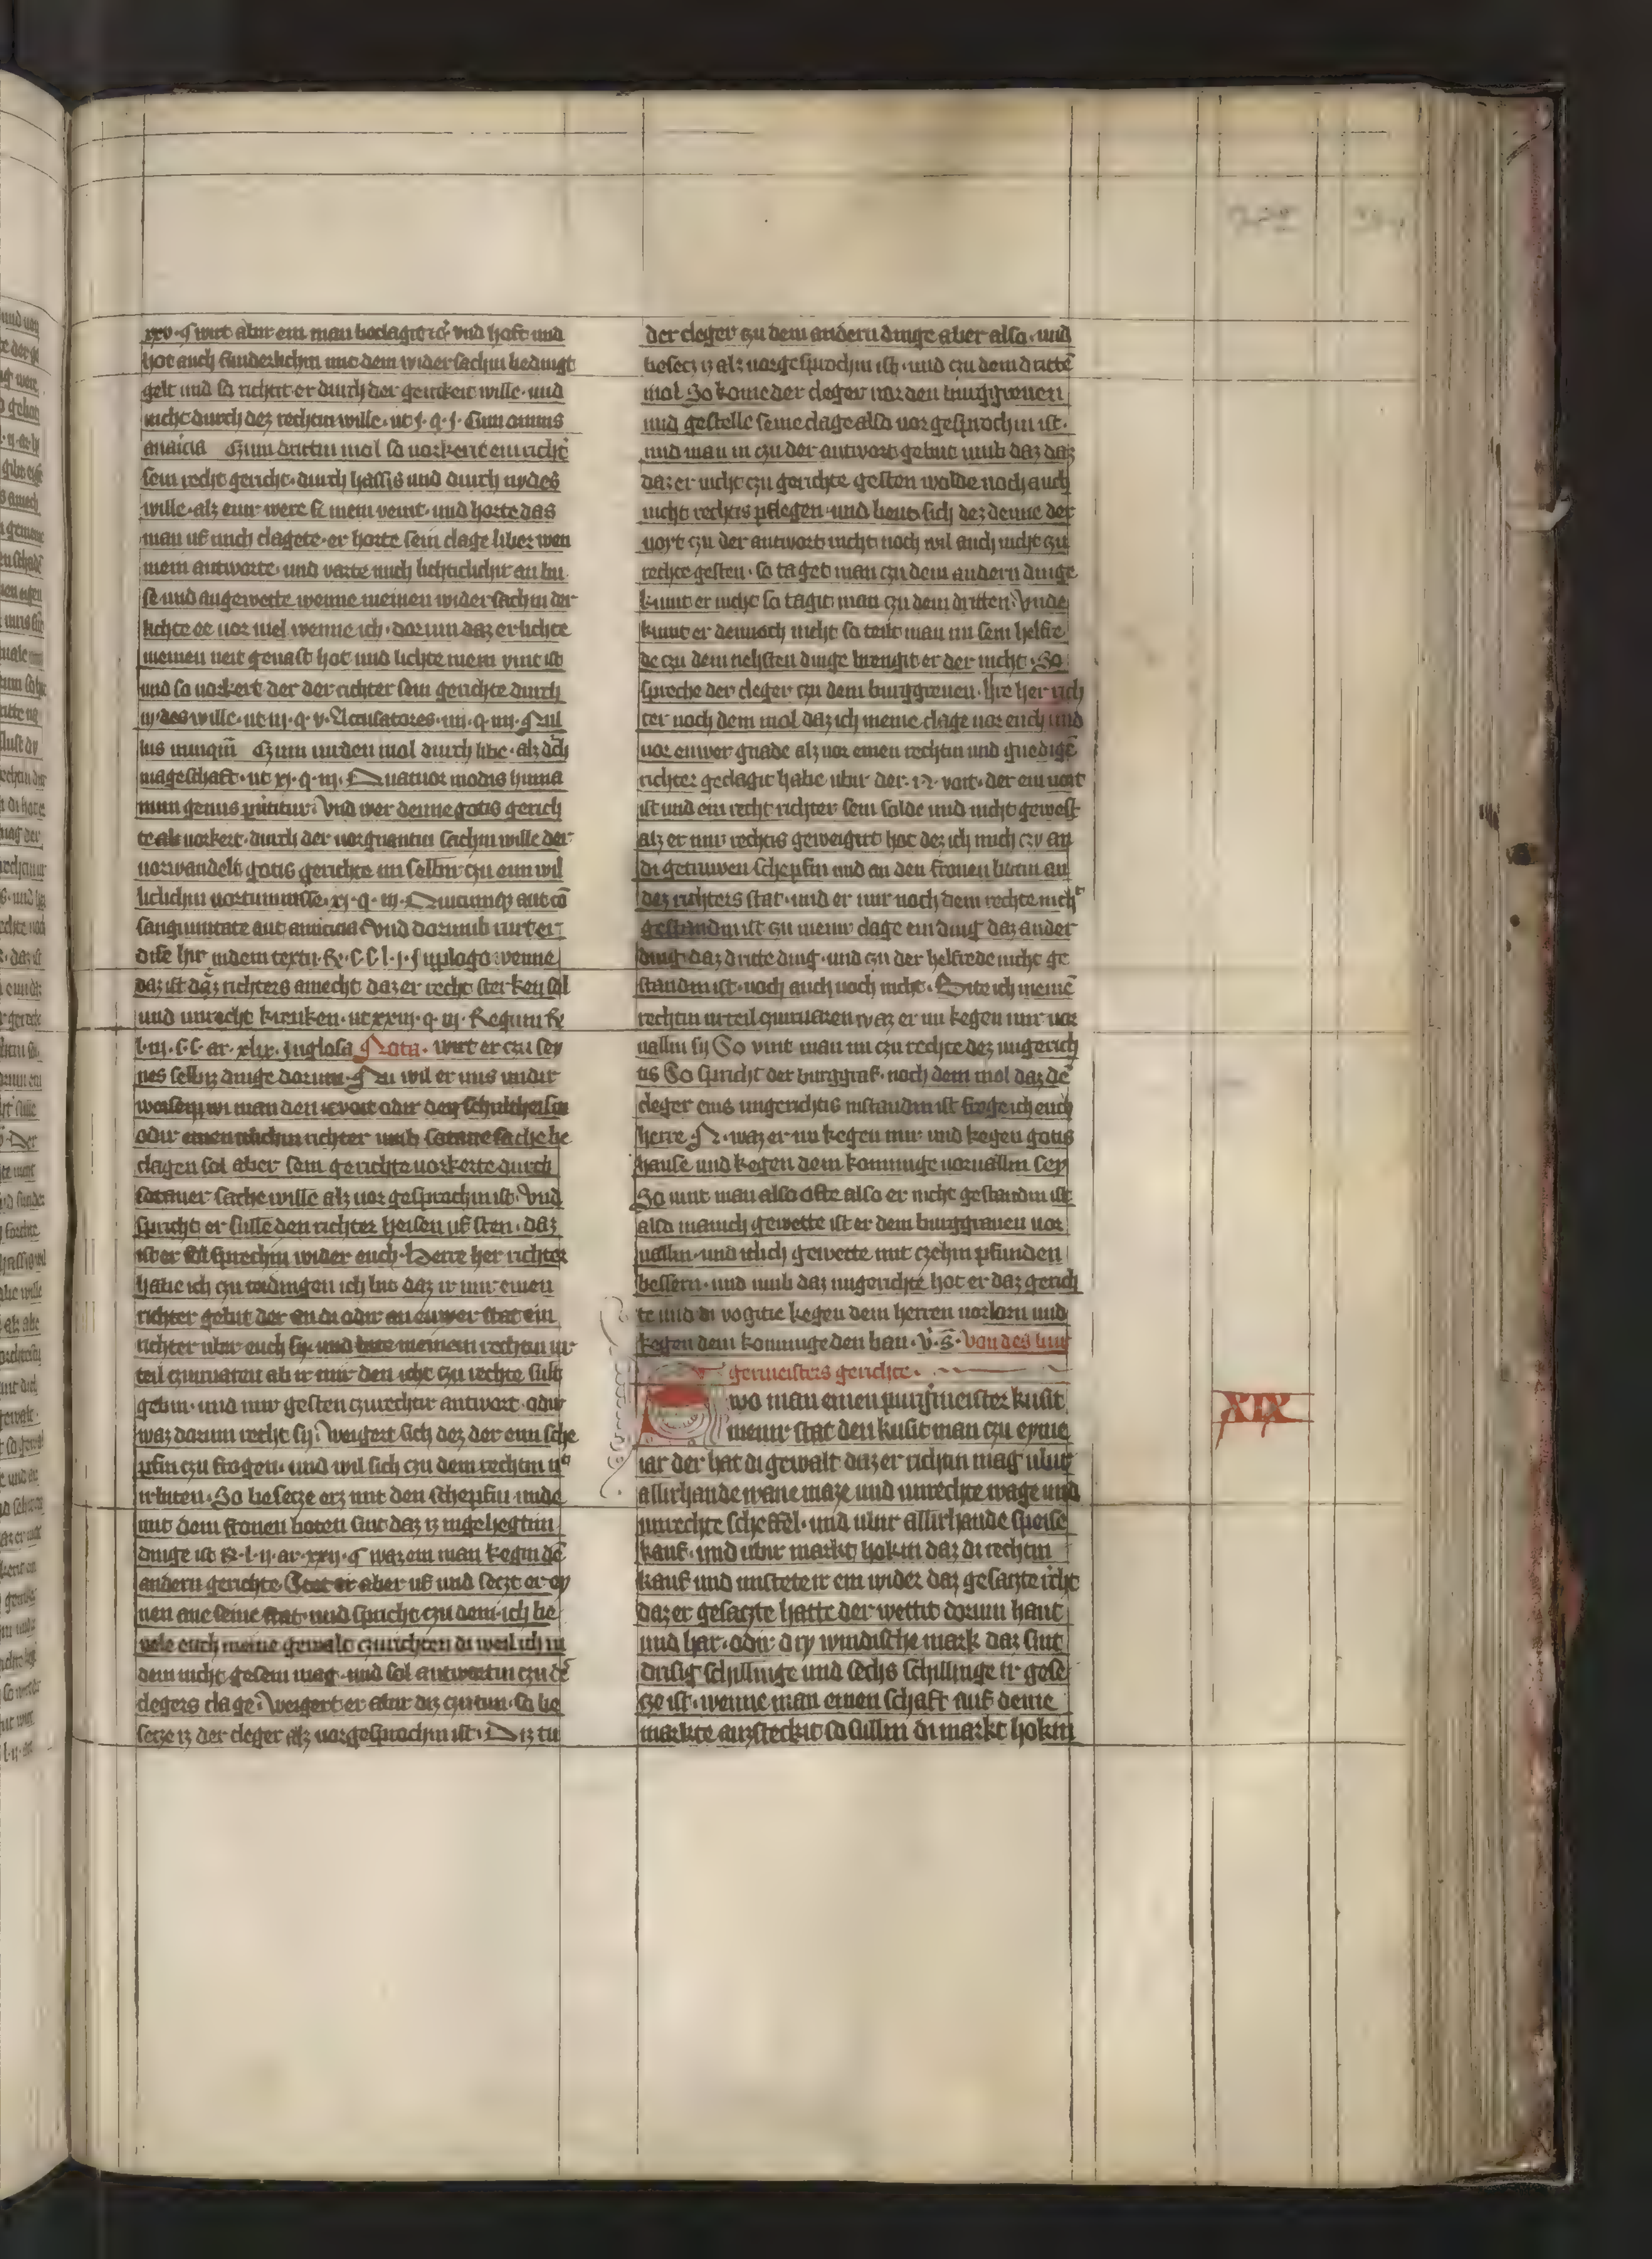 xxv · ¶ wirt abir ein man beclagit ic̄ vnd hoft und
hot auch sunderlichin mit dem widersachin bedingt
gelt und so richtit er durch der girickeit wille · und
nicht durch dez rechtin wille · ut j · q · j · Cum omnis
auaricia Czum drittin mol so uorkerit ein richt̓
sein recht gericht · durch hassis und durch nydes
wille · alz eiur were h̓ mein veint · und horte das
man uf mich clagete · er horte sein clage liber wen
mein antworte · und varte mich lichticlichir an bu
se und angewette wenne meinen widersachin der
lichte ee uor uiel wenne ich · dorum daz er lichte
meinen neit genast hot und lichte mein vint ist
und so uorkert der der richter sein gerichte durch
nydes wille · ut iij · q · v · Accusatores · iiij · q · iiij · Nul
lus unnquā Czum uirden mol durch libe · alz dch
mageschaft · ut xj · q · iij · Quatuor modis huma
num genus ꝑuititur: Vnd wer denne gotis gerich
te als uorkert · durch der uorgnantin sachin wille der
uorwandelt gotis gerichte im selbir czu eim wil
liclichin uortumnisse · xj · q · iij · Quicumqꝫ aut cō
sanguinitate aut amicicia Vnd dorumb wirt er
dise hir indem textu · &c · C C l · j · ¶ in glosa · wenne
daz ist daz richters amecht daz er recht sterken sal
und unrecht krenken · ut xxiij · q · iij · Regum &c
l · iij · C C ar · xlix · in glosa Nota · wirt er czu sey
nes selbiz dinge dorum · Nu wil er uns undir
weisen wi man den v̓voit odir den schultheisin
odir einen ulichin richter umb sotane sache be
clagen sol aber sein gerichte uorkerte durch
sotaner sache wille alz uor gesprochin ist · Vnd
spricht er sulle den richter heisen uf sten · daz
ist er sal sprechin wider euch · Herre her richter
habe ich czu tedingen ich bit daz ir mir einen
richter gebit der an di odir an euwer stat ein
richter ubir euch sy · und bite meinem rechtin ur
teil czuinaren ab ir mir den icht czu rechte sult
gebin · und mir gesten czurechtir antwort odir
waz dorum recht sy: Weigert sich dez der eim sche
pfin czu frogen · und wil sich czu dem rechtin nᵗ
irbiten · So besecze erz mit den schepfin unde
mit dem fronen boten sint daz iz ingehegtim
dinge ist R · l · ij · ar · xxij · ¶ waz ein man kegin dē
andern gerichte Stet er aber uf und seczt er ey
nen ane seine stat · und spricht czu dem · ich be
vele euch meine gewalt czurichten di weil ich in
dem nicht gesein mag · und sol antwortin czu dē
clegers clage: Weigert er abir diz czu tun · So be
secze iz der cleger alz uorgesprochin ist · Diz tu
der cleger czu dem andern dinge aber also · und
besecz iz alz uorgesprochin ist · und czu dem drittē
mol So kome der cleger uor den burggreuen
und gestelle seine clage also uor gesprochin ist ·
und man in czu der antwort gebut umb daz daz
daz er nicht czu gerichte gesten wolde noch auch
nicht rechtis pflegen · und heut sich dez denne der
voyt czu der antwort nicht noch wil auch nicht czu
rechte gesten · so taget man czu dem andern dinge
kumt er nicht so tagit man czu dem dritten: Vnde
kumt er dennoch nicht so teilt man im sein helfre
de czu dem nehsten dinge brengit er der nicht · So
spreche der cleger czu dem burggreuen · Hre her rich
ter noch dem mol daz ich meine clage uor euch und
uor euwer gnade alz uor einen rechtin und gnedigē
richter geclagit habe ubir der · N · voit · der ein voit
ist und ein recht richter sein solde und nicht gewest
alz er mir rechtis geweigirt hot dez ich mich czy an
di getruwen schepfin und an den fronen botin an
dez richters stat · und er mir noch dem rechte nich͛
gestandin ist czu meinr clage ein ding daz ander
ding · daz dritte ding · und czu der helfrede nicht ge
standin ist · noch auch noch nicht · Bite ich meinē
rechtin urteil czuinaren waz er nu kegen mir uor
uallin sy So vint man im czu rechte dez ungerich
tis So spricht der burggraf · noch dem mol daz dē
cleger eins ungerichtis instandin ist froge ich euch
herre N · waz er nu kegen mir und kegen gotis
hause und kegen dem konninge uoruallin sey
So uint man also ofte also er nicht gestandin ist
also manich gewette ist er dem burggrauen uor
uallin · und itlich gewette mit czehin pfunden
bessern · und umb daz ungerichte hot er daz gerich
te und di vogitie kegen dem herren uorlorn und
kegen dem konninge den ban · V̓ · s̄ · Von des bur
germeisters gerichte ·
Swo man einen purgͥmeister kusit
in einr stat den kusit man czu eyme
iar der hat di gewalt daz er richtin mag ubir
allirhande wane maze und unrechte wage und
unrechte scheffel · und ubir allirhande speise
kauf · und ubir markt hokin daz di rechtin
kauf und unsteteir ein wider daz gesaczte icht
daz er gesaczte hatte der wettit dorum haut
und har · odir dry windische mark daz sint
drisig schillinge und sechs schillinge ir gese
cze ist · wenne man einen schaft auf deme
markte auzsteckit so sullin di markt hokin
XIX